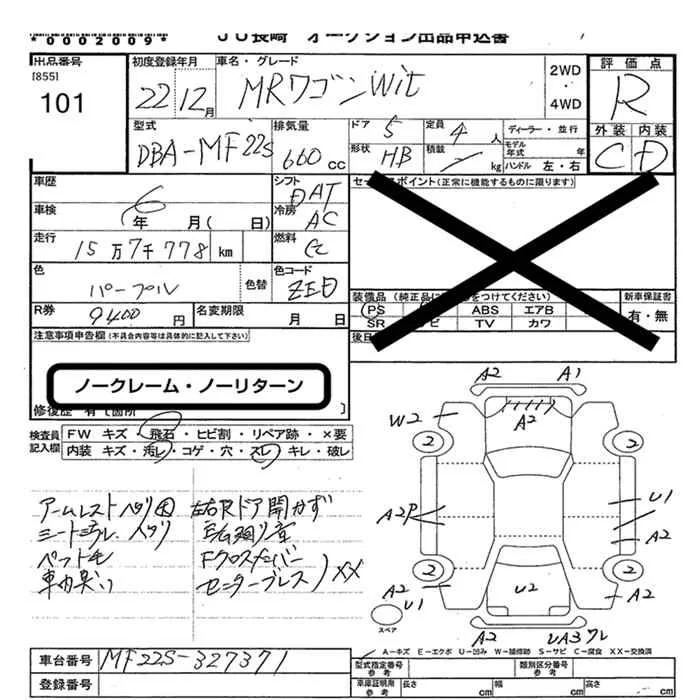 *0002009* JU長崎 オークション出品申込書
出品番号 初度登録年月 車名・グレード 評価点
[855] 2WD
101 22 12月 MRワゴンWit ・ R
4WD
型式 排気量 ドア 5 定員 4 人 ディーラー・並行 外装 内装
DBA-MF22S 660cc 形状 HB 積載 kg モデル年式 年 C D
ハンドル 左・右
車歴 シフト DAT セールスポイント(正常に機能するものに限ります)
車検 6年 月( 日) 冷房 AC
走行 15万7千778 km 燃料
色 パープル 色替 色コード ZED 装備品(純正品に をつけてください) 新車保証書
R券 9400円 名変期限 月 日 PS ABS エアB 有・無
SR TV カワ
注意事項申告欄(不具合内容等は具体的に記入して下さい) 後日
ノークレーム・ノーリターン
修復歴 有[箇所 ]
検査員 FW キズ・飛石・ヒビ割・リペア跡・×要
記入欄 内装 キズ・汚レ・コゲ・穴・スレ・キレ・破レ
アームレスト 左右Rドア開かず
ペット毛 Fクロスメンバー
車内臭い センターブレス XX
A2 A1
W2 A2
2 2
A2P U1
A2
2 2
A2 U2 A2
U1
スペア
A2 UA3ワレ
A-キズ E-エクボ U-凹み W-補修跡 S-サビ C-腐食 XX-交換済
車台番号 MF22S-327371 型式指定番号 参考 類別区分番号 参考
登録番号 車庫証明用 参考 長さ cm 幅 cm 高さ cm